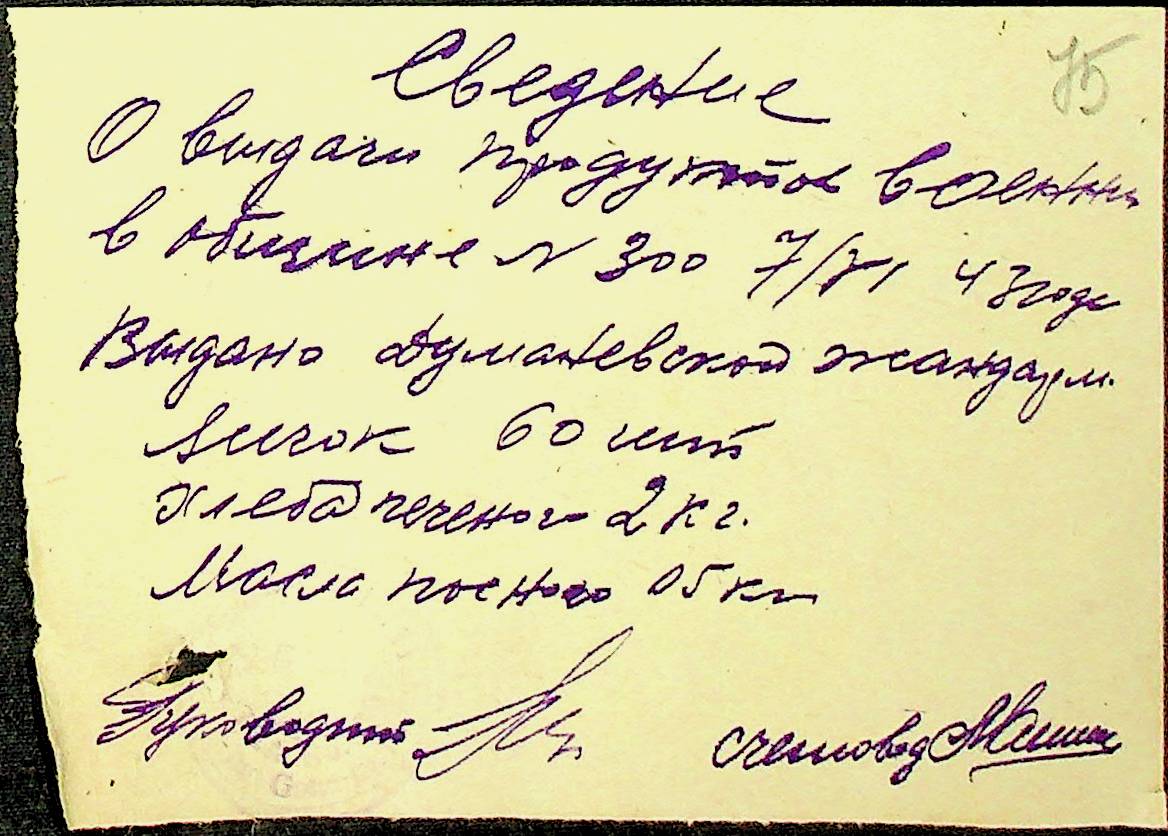 75
Сведение
О выдачи продуктов военны
в общине N 300 7/VI 43 года
Выдано Думаневской жандарм.
Яичок 60 шт
Хлеба печеного 2 кг.
Масла посного 05 кг
Руководит
счетовод